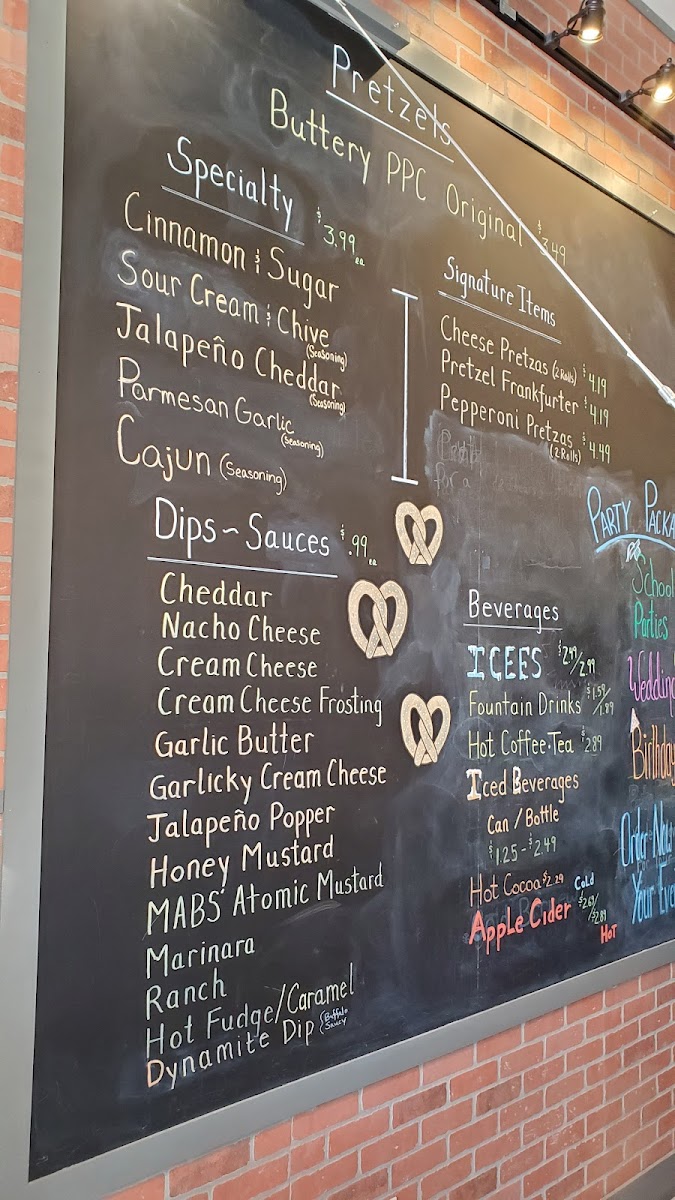 Pretzels
Buttery PPC Original $3.49
Specialty $3.99 ea
Cinnamon & Sugar
Sour Cream & Chive
(Seasoning)
Jalapeño Cheddar
(Seasoning)
Parmesan Garlic
(Seasoning)
Cajun (Seasoning)
Dips~Sauces $.99 ea
Cheddar
Nacho Cheese
Cream Cheese
Cream Cheese Frosting
Garlic Butter
Garlicky Cream Cheese
Jalapeño Popper
Honey Mustard
MABS Atomic Mustard
Marinara
Ranch
Hot Fudge/Caramel
Dynamite Dip (Buffalo
Saucy)
Signature Items
Cheese Pretzas (2 Rolls) $4.19
Pretzel Frankfurter $4.19
Pepperoni Pretzas $4.49
(2 Rolls)
for a
Beverages
ICEES
Fountain Drinks $1.59/1.89
Hot Coffee·Tea $2.89
Iced Beverages
Can / Bottle
$1.25-$2.49
Hot Cocoa $2.29
Apple Cider Cold $2.69/$2.89 Hot
Party Packa
School
Parties
Wedding
Birthday
Order Now
Your Eve